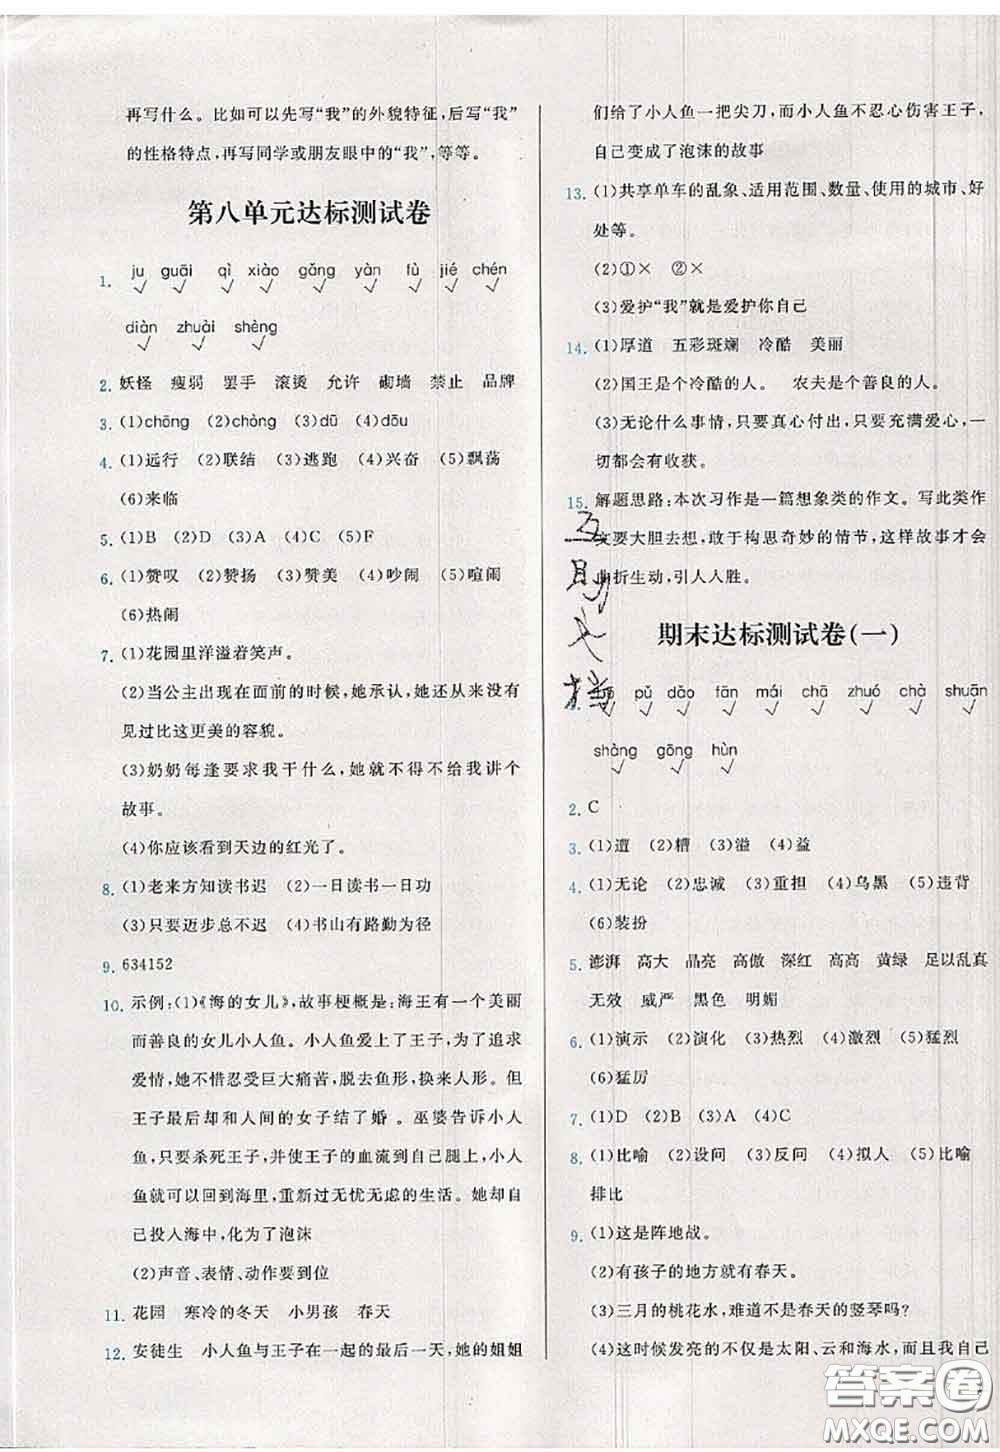 再写什么。比如可以先写“我”的外貌特征,后写“我”
的性格特点,再写同学或朋友眼中的“我”,等等。
第八单元达标测试卷
1. ju guāi qì xiào gǎng yàn fù jié chén
diàn zhuài shèng
2. 妖怪 瘦弱 罢手 滚烫 允许 砌墙 禁止 品牌
3. (1)chōng (2)chòng (3)dū (4)dōu
4. (1)远行 (2)联结 (3)逃跑 (4)兴奋 (5)飘荡
(6)来临
5. (1)B (2)D (3)A (4)C (5)F
6. (1)赞叹 (2)赞扬 (3)赞美 (4)吵闹 (5)喧闹
(6)热闹
7. (1)花园里洋溢着笑声。
(2)当公主出现在面前的时候,她承认,她还从来没有
见过比这更美的容貌。
(3)奶奶每逢要求我干什么,她就不得不给我讲个
故事。
(4)你应该看到天边的红光了。
8. (1)老来方知读书迟 (2)一日读书一日功
(3)只要迈步总不迟 (4)书山有路勤为径
9. 634152
10. 示例:(1)《海的女儿》,故事梗概是:海王有一个美丽
而善良的女儿小人鱼。小人鱼爱上了王子,为了追求
爱情,她不惜忍受巨大痛苦,脱去鱼形,换来人形。但
王子最后却和人间的女子结了婚。巫婆告诉小人
鱼,只要杀死王子,并使王子的血流到自己腿上,小人
鱼就可以回到海里,重新过无忧无虑的生活。她却自
己投入海中,化为了泡沫
(2)声音、表情、动作要到位
11. 花园 寒冷的冬天 小男孩 春天
12. 安徒生 小人鱼与王子在一起的最后一天,她的姐姐
们给了小人鱼一把尖刀,而小人鱼不忍心伤害王子,
自己变成了泡沫的故事
13. (1)共享单车的乱象、适用范围、数量、使用的城市、好
处等。
(2)①× ②×
(3)爱护“我”就是爱护你自己
14. (1)厚道 五彩斑斓 冷酷 美丽
(2)国王是个冷酷的人。 农夫是个善良的人。
(3)无论什么事情,只要真心付出,只要充满爱心,一
切都会有收获。
15. 解题思路:本次习作是一篇想象类的作文。写此类作
文要大胆去想,敢于构思奇妙的情节,这样故事才会
曲折生动,引人入胜。
期末达标测试卷(一)
pǔ dǎo fān mái chā zhuó chà shuān
shàng gōng hùn
2. C
3. (1)遭 (2)糟 (3)溢 (4)益
4. (1)无论 (2)忠诚 (3)重担 (4)乌黑 (5)违背
(6)装扮
5. 澎湃 高大 晶亮 高傲 深红 高高 黄绿 足以乱真
无效 威严 黑色 明媚
6. (1)演示 (2)演化 (3)热烈 (4)激烈 (5)猛烈
(6)猛厉
7. (1)D (2)B (3)A (4)C
8. (1)比喻 (2)设问 (3)反问 (4)拟人 (5)比喻
排比
9. (1)这是阵地战。
(2)有孩子的地方就有春天。
(3)三月的桃花水,难道不是春天的竖琴吗?
(4)这时候发亮的不仅是太阳、云和海水,而且我自己
答案圈
MXQE.COM